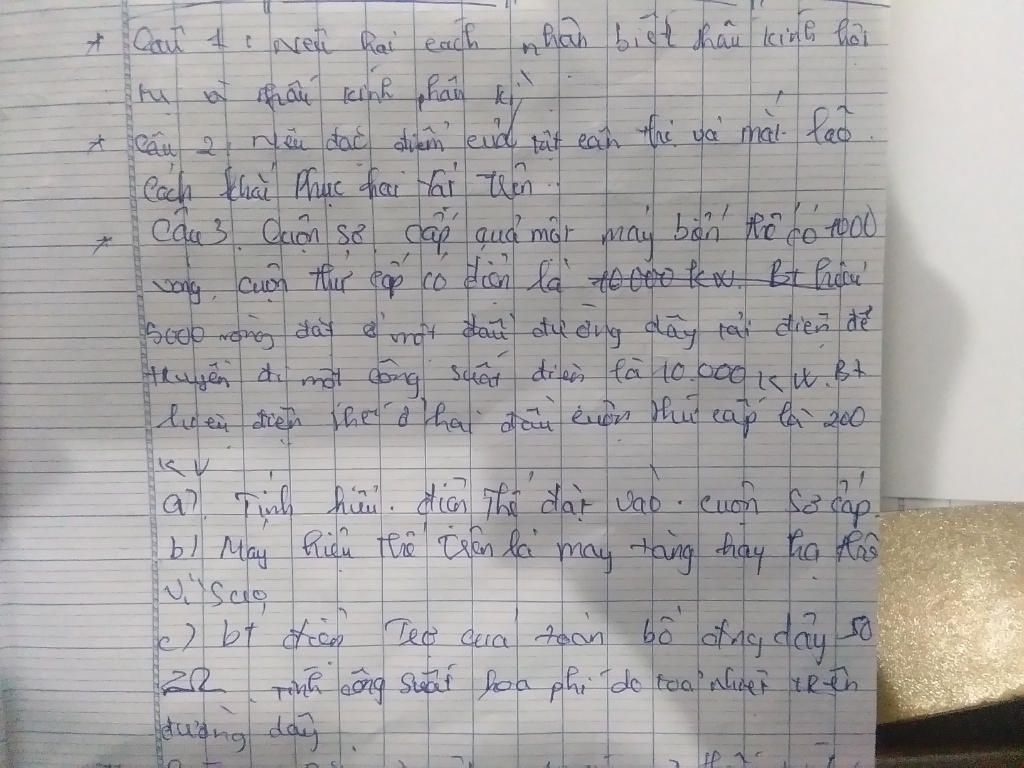 * Câu 1: nêu hai cách nhân biết thấu kính hôi
tụ và thấu kính phân kì
* Câu 2, nêu đặc điểm của tật cận thị và mắt lão.
Cách khắc phục hai tật trên.
* Câu 3. Cuộn sơ cấp của một máy biến thế có 1000
vòng, cuộn thứ cấp có điền là 10 000 kw. Bt hiệu
5000 vòng đặt ở một đầu đường dây tải điện để
truyền đi một công suất điện là 10.000 KW. Bt
hiệu điện thế ở hai đầu cuộn thứ cấp là 200
KV
a). Tính hiệu. điện thế đặt vào. cuộn sơ cấp.
b) Máy hiệu thế trên là máy tăng hay hạ thế
Vì Sao,
c) bt điện Trở của toàn bộ đờng dây 50
Ω. Tính công suất hao phí do toả nhiệt trên
đường dây.